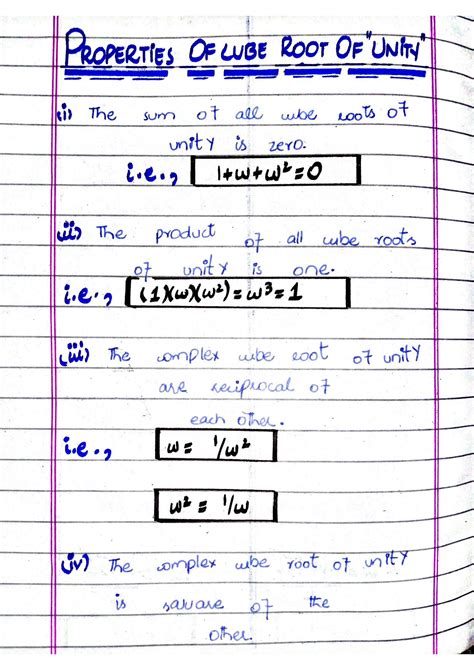 PROPERTIES OF CUBE ROOT OF "UNITY"
(i) The sum of all cube roots of
unity is zero.
i.e., 1+ω+ω²=0
(ii) The product of all cube roots
of unity is one.
i.e., (1)(ω)(ω²)=ω³=1
(iii) The complex cube root of unity
are reciprocal of
each other.
i.e., ω = 1/ω²
ω² = 1/ω
(iv) The complex cube root of unity
is square of the
other.